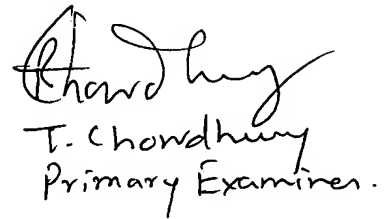 Chowdhury
T. Chowdhury
Primary Examiner.